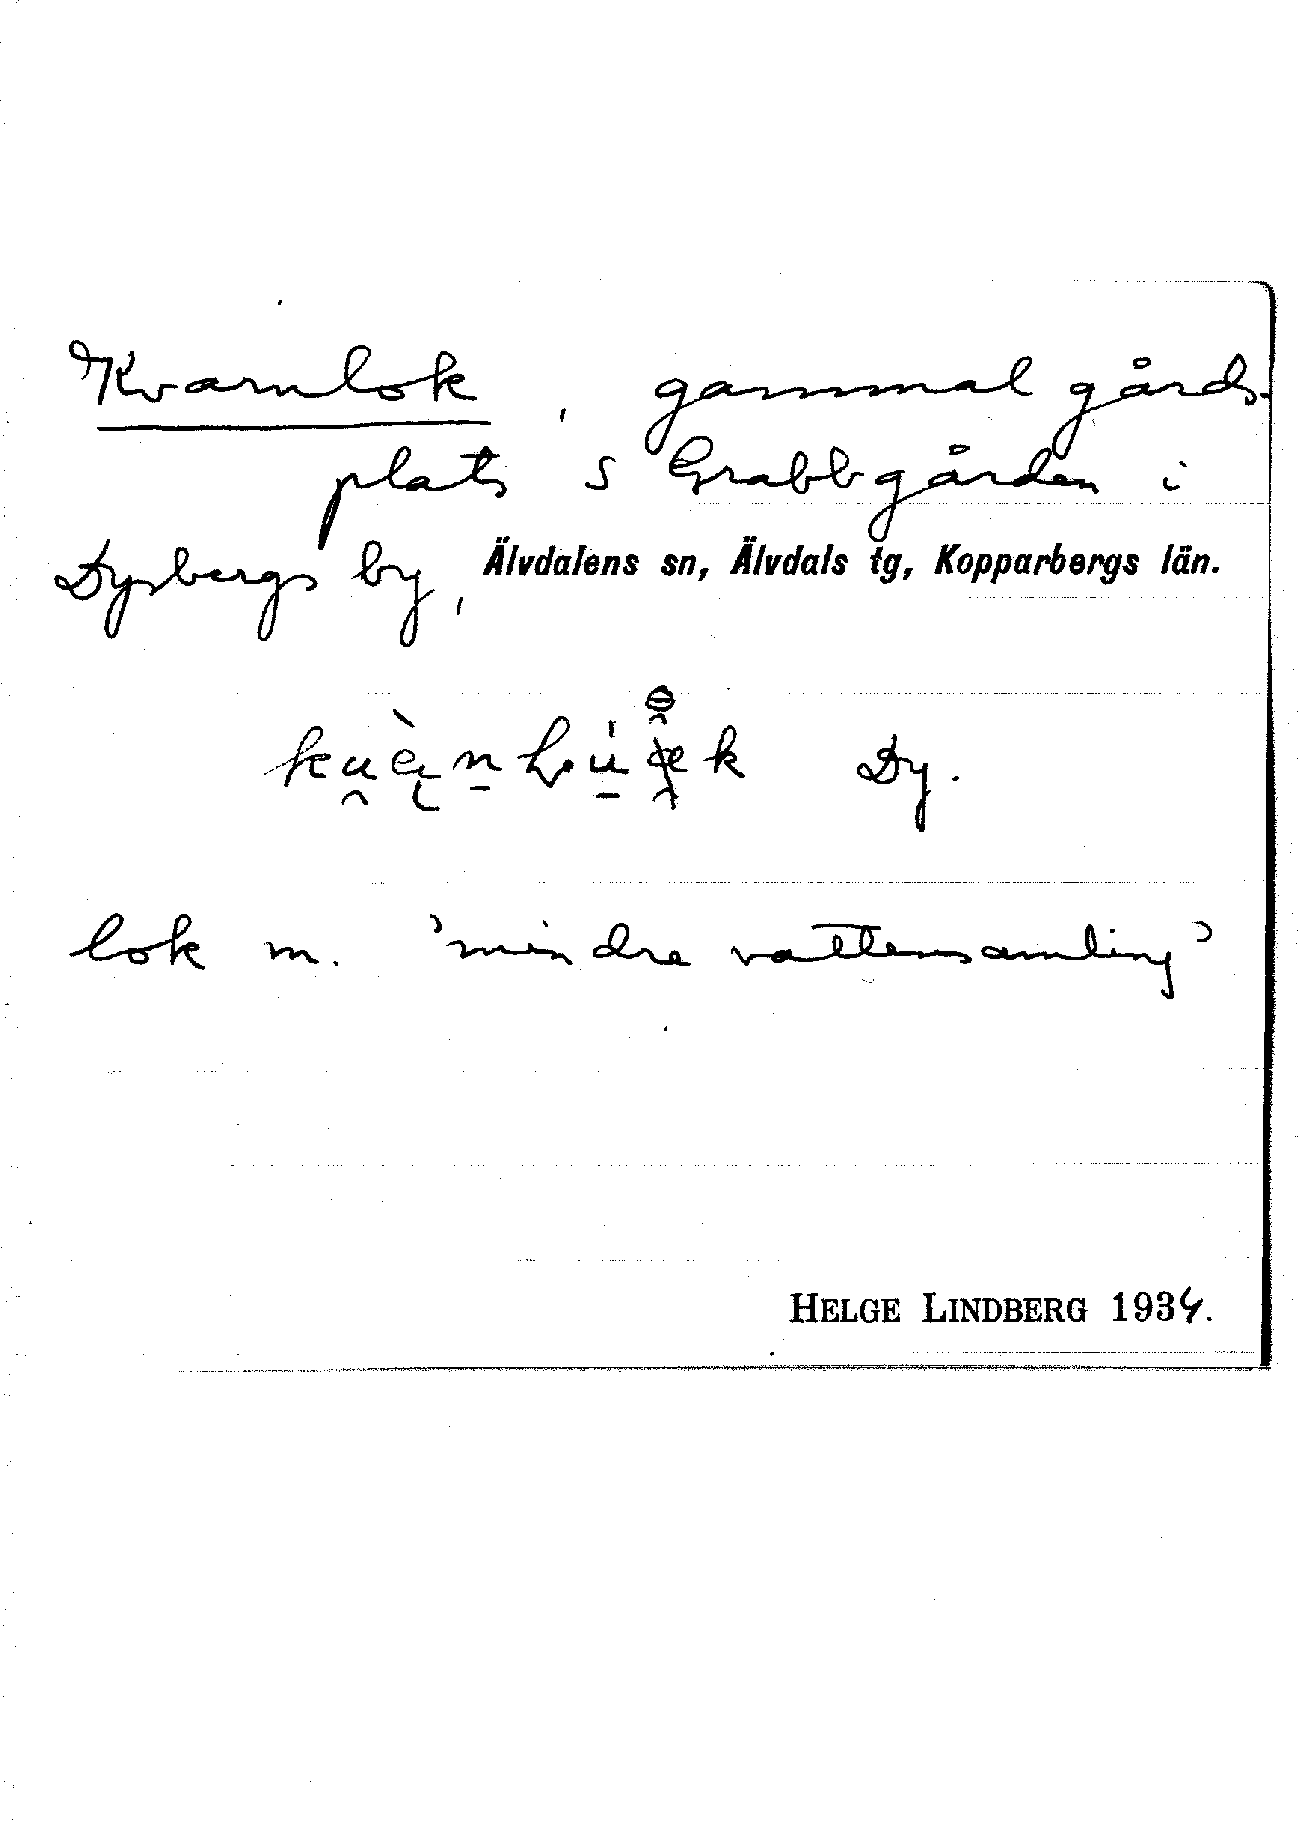 Kvarnlok, gammal gårds-
plats S Grabbgården i
Dysbergs by, Älvdalens sn, Älvdals tg, Kopparbergs län.
Dy.
lok m. 'mindre vattensamling'
HELGE LINDBERG 1934.